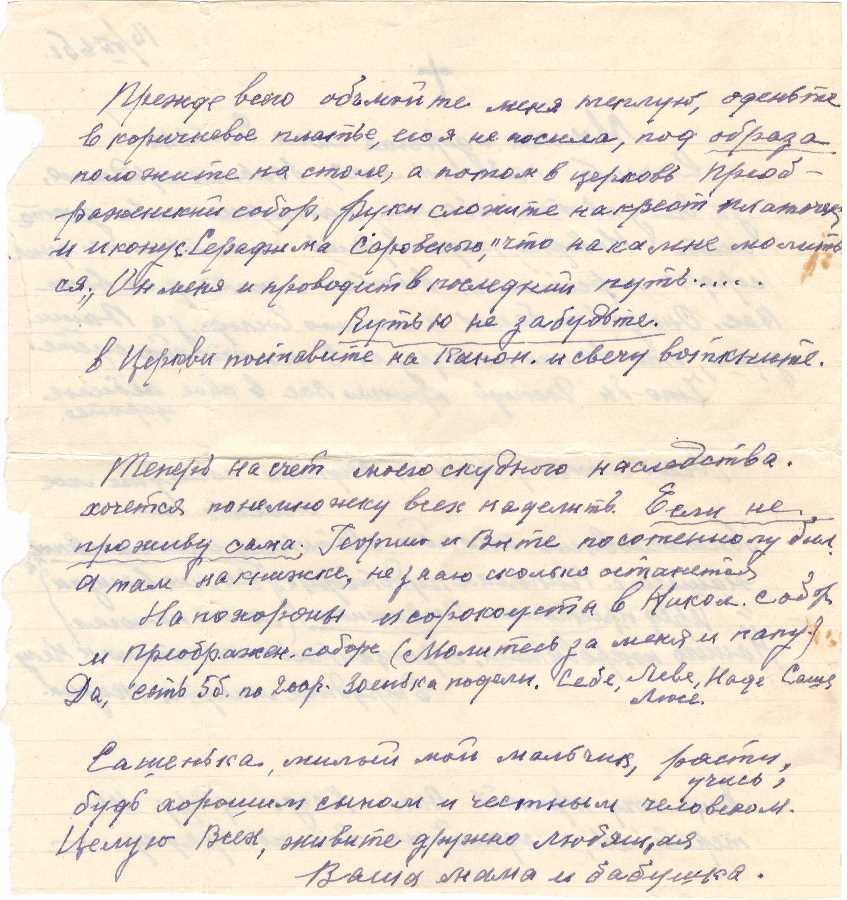 Прежде всего обмойте меня теплую, оденьте
в коричневое платье, его я не носила, под образа
положите на столе, а потом в церковь Преоб-
раженский собор. Руки сложите на крест платочек
и икону „Серафима Саровского", что на камне молить-
ся, Он меня и проводит в последний путь.....
Кутью не забудьте.
в Церкви поставите на Канон. и свечу воткните.
Теперь насчет моего скудного наследства.
хочется понемножку всех наделить. Если не
проживу сама, Георгию и Вите по сотенному бил.
А там на книжке, не знаю сколько останется
На похороны и сорокоусты в Никол. собор
и Преображен. соборе (Молитесь за меня и папу.)
Да, есть 5б. по 200р. Зоенька подели. Себе, Леве, Наде Саше
Люсе.
Сашенька, милый мой мальчик, расти,
учись,
будь хорошим сыном и честным человеком.
Целую Всех, живите дружно любящая
Ваша мама и бабушка.